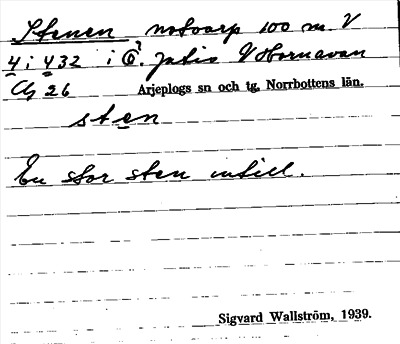 Stenen notvarp 100 m. V
4 i 432 i Ö. Jutis V Hornavan
Cg 26 Arjeplogs sn och tg, Norrbottens län.
sten
En stor sten intill.
Sigvard Wallström, 1939.